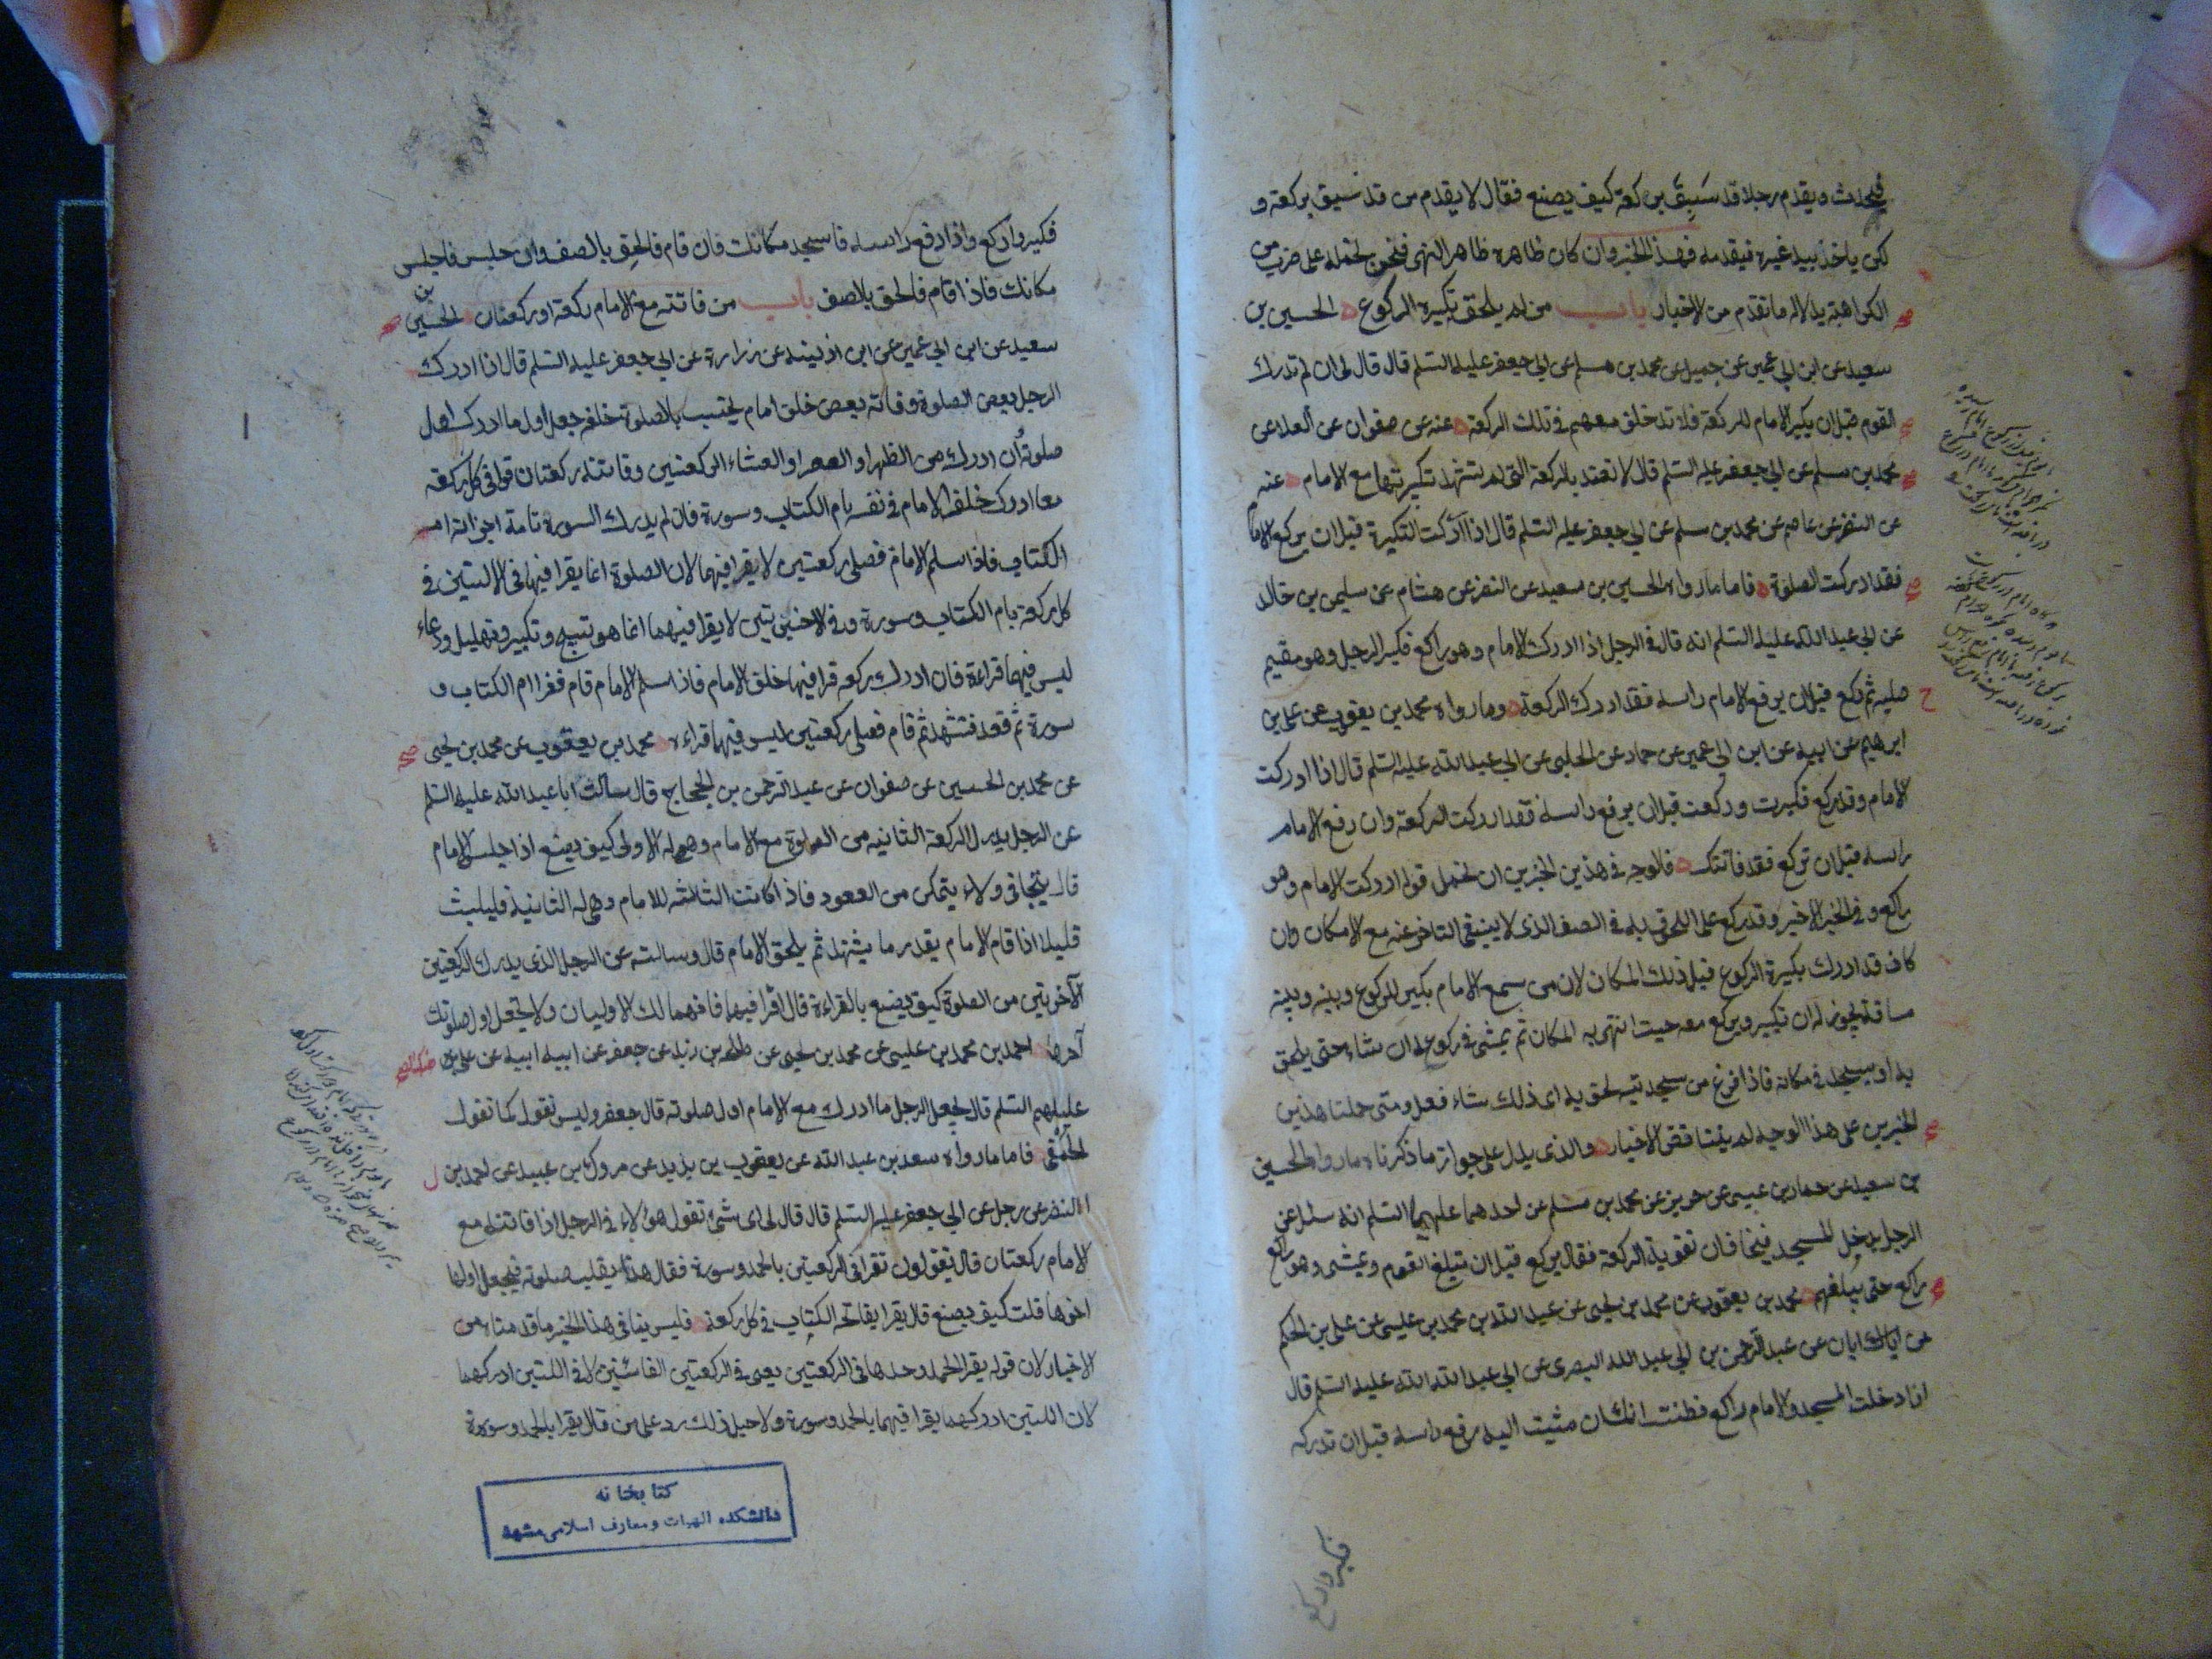 فيحدث ويقدم رجلا قد سَبِقَ بركعة كيف يصنع فقال لا يقدم من قد سبق بركعة و
لكن ياخذ بيد غيره فيقدمه فهذا الخبر وان كان ظاهره ظاهر النهى فنحن نحمله على ضرب من
الكراهية بدلالة ما تقدم من الاخبار باب من لم يلحق تكبيرة الركوع الحسين بن
سعيد عن ابن ابي عمير عن جميل عن محمد بن مسلم عن ابي جعفر عليه السلم قال قال لى ان لم تدرك
القوم قبل ان يكبر الامام للركعة فلا تدخلن معهم في تلك الركعة عنه عن صفوان عن العلا عن
محمد بن مسلم عن ابي جعفر عليه السلم قال لا تعتد بالركعة التي لم تشهد تكبيرتها مع الامام عنه
عن النضر عن عاصم عن محمد بن مسلم عن ابي جعفر عليه السلم قال اذا ادركت التكبيرة قبل ان يركع الاما
فقد ادركت الصلوة فاما ما رواه الحسين بن سعيد عن النضر عن هشام عن سليمن بن خالد
عن ابي عبد الله عليه السلم انه قال في الرجل اذا ادرك الامام وهو راكع فكبر الرجل وهو مقيم
صلبه ثم ركع قبل ان يرفع الامام راسه فقد ادرك الركعة وما رواه محمد بن يعقوب عن علي بن
ابرهيم عن ابيه عن ابن ابي عمير عن حماد عن الحلبى عن ابي عبد الله عليه السلم قال اذا ادركت
الامام وقد ركع فكبرت وركعت قبل ان يرفع راسه فقد ادركت الركعة وان رفع الامام
راسه قبل ان تركع فقد فاتتك فالوجه في هذين الخبرين ان نحمل قوله ادركت الامام وهو
راكع وفي الخبر الاخير وقد ركع على اللحوق به في الصف الذي لا ينبغي التاخر عنه مع الامكان وان
كان قد ادرك تكبيرة الركوع قبل ذلك المكان لان من سمع الامام يكبر للركوع وبينه وبينه
مسافة يجوز له ان يكبر ويركع معه حيث انتهى به المكان ثم يمشي في ركوعه ان شاء حتى يلحق
به او يسجد في مكانه فاذا فرغ من سجدتيه لحق به اى ذلك شاء فعل ومتى حملنا هذين
الخبرين على هذا الوجه لم يتناقض الاخبار والذي يدل على جواز ما ذكرناه ما رواه الحسين
بن سعيد عن حماد بن عيسى عن حريز عن محمد بن مسلم عن احدهما عليهما السلم انه سئل عن
الرجل يدخل المسجد فيخاف ان تفوته الركعة فقال يركع قبل ان يبلغ القوم ويمشى وهو راكع
راكع حتى يبلغهم محمد بن يعقوب عن محمد بن يحيى عن عبد الله بن محمد بن عيسى عن علي بن الحكم
عن ابان عن عبد الرحمن بن ابي عبد الله البصرى عن ابي عبد الله عليه السلم قال
اذا دخلت المسجد والامام راكع فظننت انك ان مشيت اليه رفع راسه قبل ان تدركه
فكبر واركع
فكبر واركع واذا رفع راسه فاسجد مكانك فان قام فالحق بالصف وان جلس فاجلس
مكانك فاذا قام فالحق بالصف باب من فاتته مع الامام ركعة او ركعتان الحسين بن
سعيد عن ابن ابي عمير عن ابن اذينه عن زرارة عن ابي جعفر عليه السلم قال اذا ادرك
الرجل بعض الصلوة وفاته بعض خلف امام يحتسب بالصلوة خلفه جعل اول ما ادرك اول
صلوته ان ادرك من الظهر او العصر او العشاء الركعتين وفاتته ركعتان قرا في كل ركعة
مما ادرك خلف الامام في نفسه بام الكتاب وسورة فان لم يدرك السورة تامة اجزاته ام
الكتاب فاذا سلم الامام فصلى ركعتين لا يقرا فيهما لان الصلوة انما يقرا فيها في الاليتين في
كل ركعة بام الكتاب وسورة وفي الاخيرتين لا يقرا فيهما انما هو تسبيح وتكبير وتهليل ودعاء
ليس فيهما قراءة فان ادرك ركعة قرا فيها خلف الامام فاذا سلم الامام قام فقرا ام الكتاب و
سورة ثم قعد فتشهد ثم قام فصلى ركعتين ليس فيهما قراءه محمد بن يعقوب عن محمد بن يحيى
عن محمد بن الحسين عن صفوان عن عبد الرحمن بن الحجاج قال سالت ابا عبد الله عليه السلم
عن الرجل يدرك الركعة الثانيه من الصلوة مع الامام وهي له الاولى كيف يصنع اذا جلس الامام
قال يتجافى ولا يتمكن من القعود فاذا كانت الثالثه للامام وهى له الثانية فليلبث
قليلا اذا قام الامام بقدر ما يتشهد ثم يلحق الامام قال وسالته عن الرجل الذي يدرك الركعتين
الآخرتين من الصلوة كيف يصنع بالقراءة قال اقرا فيهما فانهما لك الاوليان ولا تجعل اول صلوتك
آخرها احمد بن محمد بن عيسى عن محمد بن يحيى عن طلحه بن زيد عن جعفر عن ابيه عن على
عليهم السلم قال يجعل الرجل ما ادرك مع الامام اول صلوته قال جعفر وليس نقول كما تقول
الحمقى فاما ما رواه سعد بن عبد الله عن يعقوب بن يزيد عن مروك بن عبيد عن احمد بن
النضر عن رجل عن ابي جعفر عليه السلم قال قال لى اى شئ تقول هؤلاء في الرجل اذا فاتته مع
الامام ركعتان قال يقولون تقرا في الركعتين بالحمد وسورة فقال هذا يقلب صلوته فيجعل اولها
اخرها قلت كيف يصنع قال يقرا بفاتحة الكتاب في كل ركعة فليس ينافي هذا الخبر ما قدمناه من
الاخبار لان قوله يقرا الحمد وحدها في الركعتين يعنى في الركعتين الفائتتين لا في اللتين ادركهما
لان اللتين ادركهما يقرا فيهما بالحمد وسورة ولاجل ذلك رد على من قال يقرا بالحمد وسورة
كتابخانه
دانشكده الهيات و معارف اسلامى مشهد